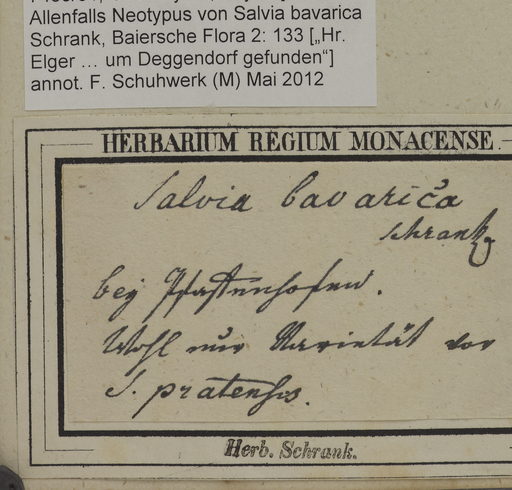 Allenfalls Neotypus von Salvia bavarica
Schrank, Baiersche Flora 2: 133 [„Hr.
Elger ... um Deggendorf gefunden“]
annot. F. Schuhwerk (M) Mai 2012
HERBARIUM REGIUM MONACENSE.
Salvia bavarica
Schrank
bey Pfaffenhofen.
Wohl nur Varietät von
S. pratensis.
Herb. Schrank.